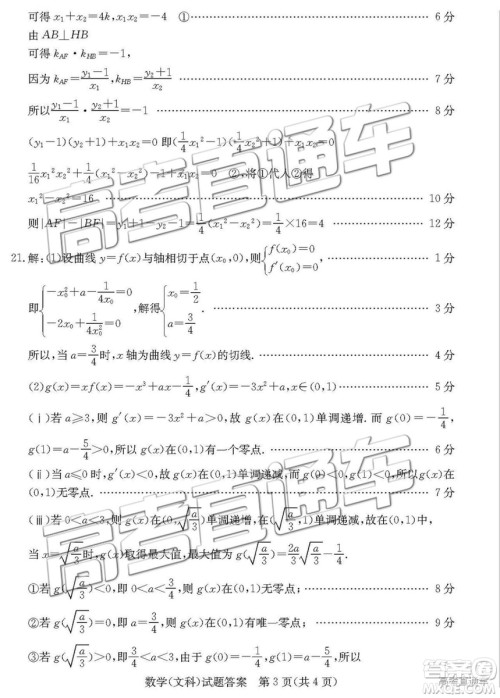 可得 x₁+x₂=4k, x₁x₂=-4　① …… 6分
由 AB⊥HB
可得 k_AF·k_HB=-1,
因为 k_AF=(y₁-1)/x₁, k_HB=(y₂+1)/x₂ …… 7分
所以 (y₁-1)/x₁·(y₂+1)/x₂=-1 …… 8分
(y₁-1)(y₂+1)+x₁x₂=0 即(1/4 x₁²-1)(1/4 x₂²+1)+x₁x₂=0
1/16 x₁²x₂²+1/4(x₁²-x₂²)-1+x₁x₂=0　②,将①代入②得
x₁²-x₂²=16 …… 10分
则|AF|-|BF|=y₁-y₂=1/4(x₁²-x₂²)=1/4×16=4 …… 12分
21.解:(1)设曲线 y=f(x)与轴相切于点(x₀,0),则{f(x₀)=0 f′(x₀)=0, …… 1分
即{-x₀²+a-1/(4x₀)=0 -2x₀+1/(4x₀²)=0,解得{x₀=1/2 a=3/4. …… 3分
所以,当 a=3/4时,x 轴为曲线 y=f(x)的切线. …… 4分
(2)g(x)=xf(x)=-x³+ax-1/4, g′(x)=-3x²+a, x∈(0,1) …… 5分
(ⅰ)若 a≥3,则 g′(x)=-3x²+a>0,故 g(x)在(0,1)单调递增.而 g(0)=-1/4,
g(1)=a-5/4>0,所以 g(x)在(0,1)有一个零点. …… 6分
(ⅱ)当 a≤0时,g′(x)<0,故 g(x)在(0,1)单调递减,而 g(0)<0,g(1)<0,所以 g(x)在(0,
1)无零点. …… 7分
(ⅲ)若 0<a<3,则 g(x)在(0,√(a/3))单调递增,在(√(a/3),1)单调递减,故在(0,1)中,
当 x=√(a/3)时,g(x)取得最大值,最大值为 g(√(a/3))=2a/3 √(a/3)-1/4.
①若 g(√(a/3))<0,即 0<a<3/4,则 g(x)在(0,1)无零点; …… 8分
②若 g(√(a/3))=0,即 a=3/4,则 g(x)在(0,1)有唯一零点; …… 9分
③若 g(√(a/3))>0,即 3/4<a<3,由于 g(0)=-1/4, g(1)=a-5/4,所以
数学(文科)试题答案　第 3 页(共 4 页)
高考直通车